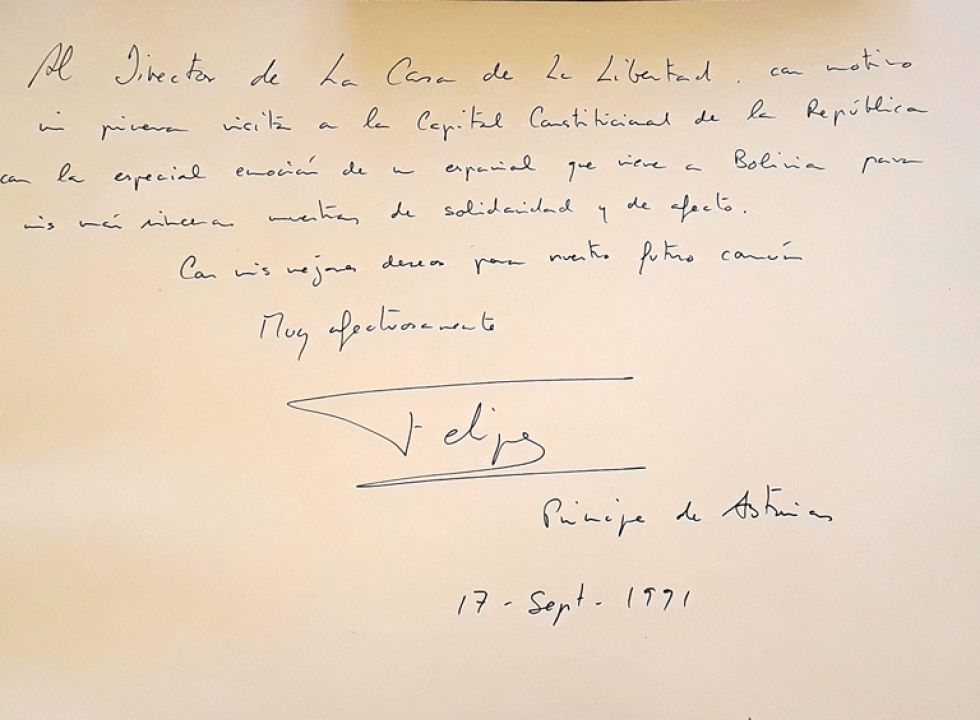 Al Director de La Casa de la Libertad. con motivo
mi primera visita a la Capital Constitucional de la República
con la especial emoción de un español que viene a Bolivia para
mis más sinceras muestras de solidaridad y de afecto.
Con mis mejores deseos para nuestro futuro común
Muy afectuosamente
Felipe
Príncipe de Asturias
17 - Sept - 1991